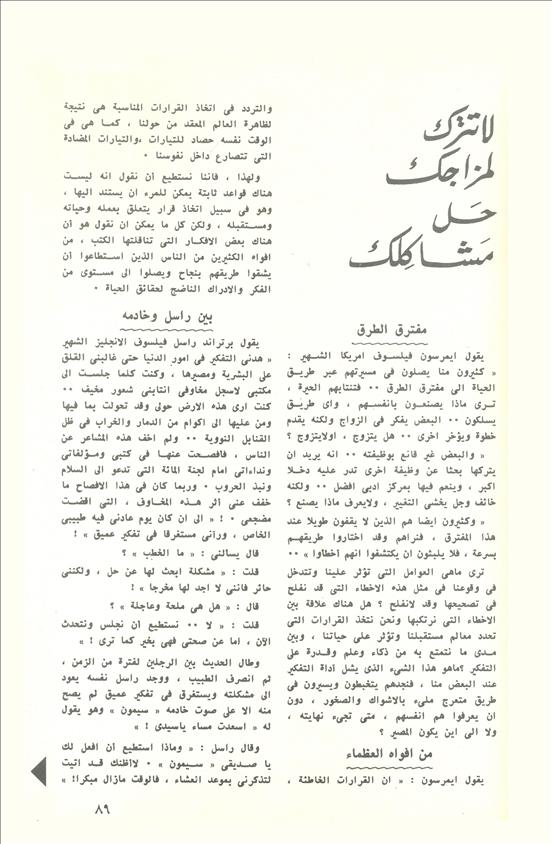 لاتترك
لمزاجك
حل
مشاكلك
مفترق الطرق
يقول ايمرسون فيلسوف امريكا الشهير :
« كثيرون منا يصلون فى مسيرتهم عبر طريق
الحياة الى مفترق الطرق ٠٠ فتنتابهم الحيرة ،
ترى ماذا يصنعون بانفسهم ، واى طريق
يسلكون ٠٠ البعض يفكر فى الزواج ولكنه يقدم
خطوة ويؤخر اخرى ٠٠ هل يتزوج ، اولايتزوج ؟
« والبعض غير قانع بوظيفته ٠٠ انه يريد ان
يتركها بحثا عن وظيفة اخرى تدر عليه دخلا
اكبر ، وينعم فيها بمركز ادبى افضل ٠٠ ولكنه
خائف وجل يخشى التغيير ، ولايعرف ماذا يصنع ؟
« وكثيرون ايضا هم الذين لا يقفون طويلا عند
هذا المفترق ، فنراهم وقد اختاروا طريقهم
بسرعة ، فلا يلبثون ان يكتشفوا انهم أخطأوا » ٠٠
ترى ماهى العوامل التى تؤثر علينا وتتدخل
فى وقوعنا فى مثل هذه الاخطاء التى قد نفلح
فى تصحيحها وقد لانفلح ؟ هل هناك علاقة بين
الاخطاء التى نرتكبها ونحن نتخذ القرارات التى
تحدد معالم مستقبلنا وتؤثر على حياتنا ، وبين
مدى ما نتمتع به من ذكاء وعلم وقدرة على
التفكير ؟ماهو هذا الشىء الذى يشل أداة التفكير
عند البعض منا ، فنجدهم يتخبطون ويسيرون فى
طريق متعرج ملىء بالاشواك والصخور ، دون
ان يعرفوا هم انفسهم ، متى تجىء نهايته ،
ولا الى اين يكون المصير ؟
من افواه العظماء
يقول ايمرسون : « ان القرارات الخاطئة ،
والتردد فى اتخاذ القرارات المناسبة هى نتيجة
لظاهرة العالم المعقد من حولنا ، كما هى فى
الوقت نفسه حصاد للتيارات ،والتيارات المضادة
التى تتصارع داخل نفوسنا ٠
ولهذا ، فاننا نستطيع أن نقول انه ليست
هناك قواعد ثابتة يمكن للمرء ان يستند اليها ،
وهو فى سبيل اتخاذ قرار يتعلق بعمله وحياته
ومستقبله ، ولكن كل ما يمكن ان نقول هو أن
هناك بعض الافكار التى تناقلتها الكتب ، من
افواه الكثيرين من الناس الذين استطاعوا أن
يشقوا طريقهم بنجاح ويصلوا الى مستوى من
الفكر والادراك الناضج لحقائق الحياة ٠
بين راسل وخادمه
يقول برتراند راسل فيلسوف الانجليز الشهير
« هدنى التفكير فى امور الدنيا حتى غالبنى القلق
على البشرية ومصيرها ، وكنت كلما جلست الى
مكتبى لاسجل مخاوفى انتابنى شعور مخيف ٠٠
كنت ارى هذه الارض حولى وقد تحولت بما فيها
ومن عليها الى اكوام من الدمار والخراب فى ظل
القنابل النووية ٠٠ ولم اخف هذه المشاعر عن
الناس ، فافصحت عنها فى كتبى ومؤلفاتى
ونداءاتى امام لجنة المائة التى تدعو الى السلام
ونبذ الحروب ٠ وربما كان فى هذا الافصاح ما
خفف عنى أثر هذه المخاوف ، التى اقضت
مضجعى ٠ ! « الى ان كان يوم عادنى فيه طبيبى
الخاص ، ورآنى مستغرقا فى تفكير عميق » !
قال يسالنى : « ما الخطب » ؟
قلت : « مشكلة ابحث لها عن حل ، ولكننى
حائر فاننى لا اجد لها مخرجا » !
قال : « هل هى ملحة وعاجلة » ؟
قلت : « لا ٠٠ نستطيع ان نجلس ونتحدث
الآن ، اما عن صحتى فهى بخير كما ترى ! »
وطال الحديث بين الرجلين لفترة من الزمن ،
ثم انصرف الطبيب ، ووجد راسل نفسه يعود
الى مشكلته ويستغرق فى تفكير عميق لم يصح
منه الا على صوت خادمه « سيمون » وهو يقول
له « اسعدت مساء ياسيدى ! »
وقال راسل : « وماذا استطيع ان افعل لك
يا صديقى « سيمون » ٠ لااظنك قد اتيت
لتذكرنى بموعد العشاء ، فالوقت مازال مبكرا! »
٨٩